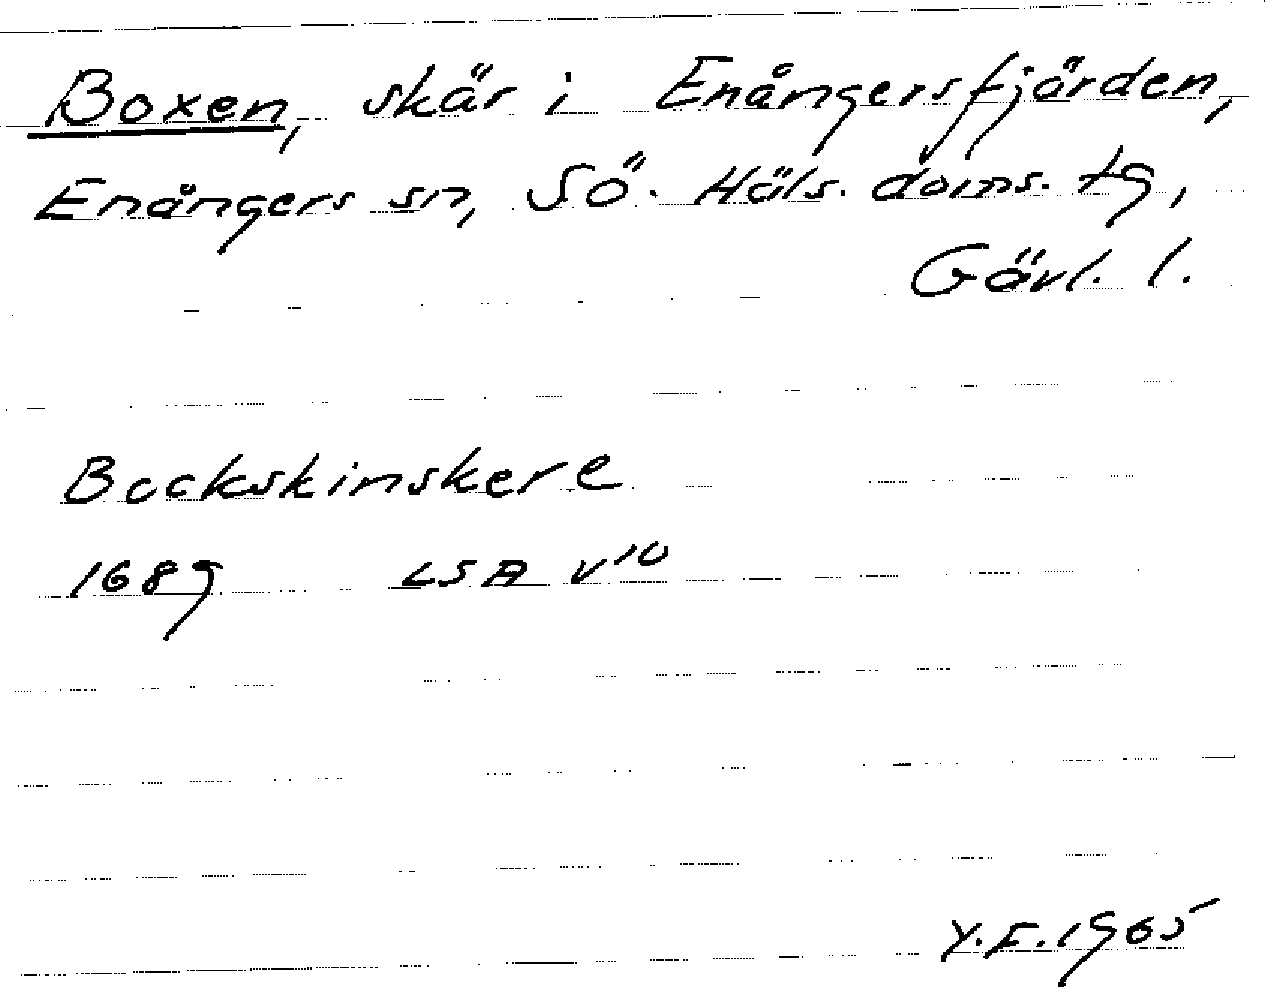 Boxen, skär i Enångersfjärden,
Enångers sn, Sö. Häls. doms. tg,
Gävl. l.
Bockskinskere
1689 LSA V10
Y.E.1965